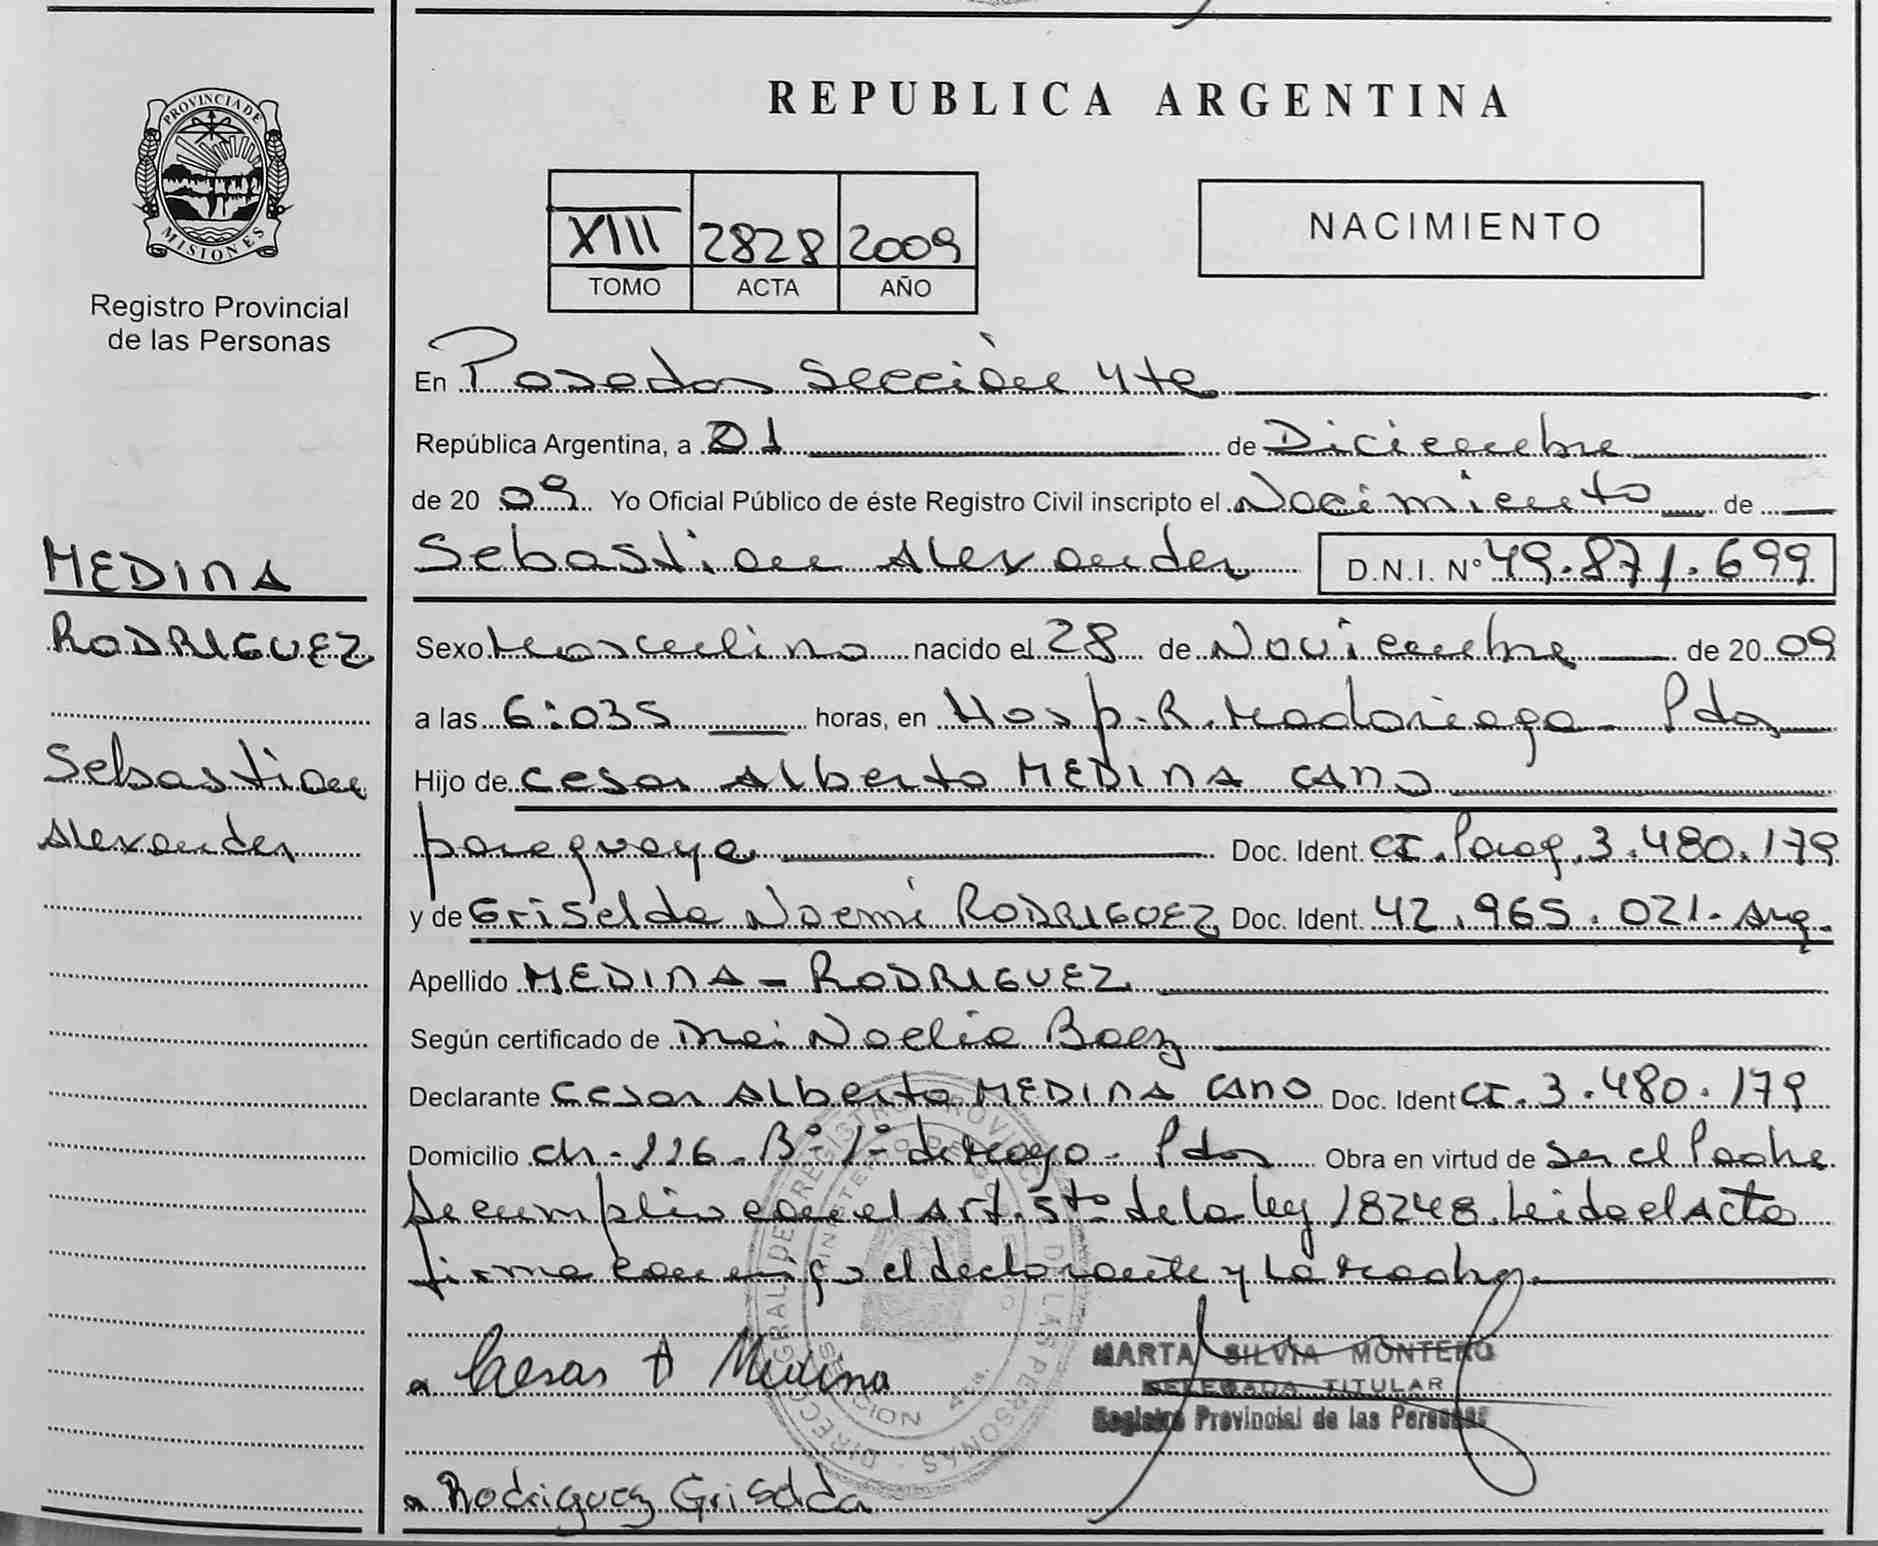 PROVINCIA DE MISIONES
Registro Provincial
de las Personas
MEDINA
RODRIGUEZ
Sebastian
Alexander
REPUBLICA ARGENTINA
XIII 2828 2009
TOMO ACTA AÑO
NACIMIENTO
En Posadas Sección 4ta
República Argentina, a 01 de Diciembre
de 20 09 Yo Oficial Público de éste Registro Civil inscripto el Nacimiento de
Sebastian Alexander D.N.I. N° 49.871.699
Sexo Masculino nacido el 28 de Noviembre de 20 09
a las 6:035 horas, en Hosp. R. Madariaga - Pdas
Hijo de Cesar Alberto MEDINA CANO
paraguaya Doc. Ident. CI. Parag. 3.480.179
y de Griselda Noemi RODRIGUEZ Doc. Ident. 42.965.021 - Arg.
Apellido MEDINA - RODRIGUEZ
Según certificado de Noelia Baez
Declarante Cesar Alberto MEDINA CANO Doc. Ident CI. 3.480.179
Domicilio ch - 116 - B° 1° de Mayo - Pdas Obra en virtud de ser el Padre
Se cumplio con el Art. 5to de la ley 18248. Leida el Acta
firma conmigo el declarante y la madre.
Cesar A Medina
MARTA SILVIA MONTERO
DELEGADA TITULAR
Registro Provincial de las Personas
Rodriguez Griselda